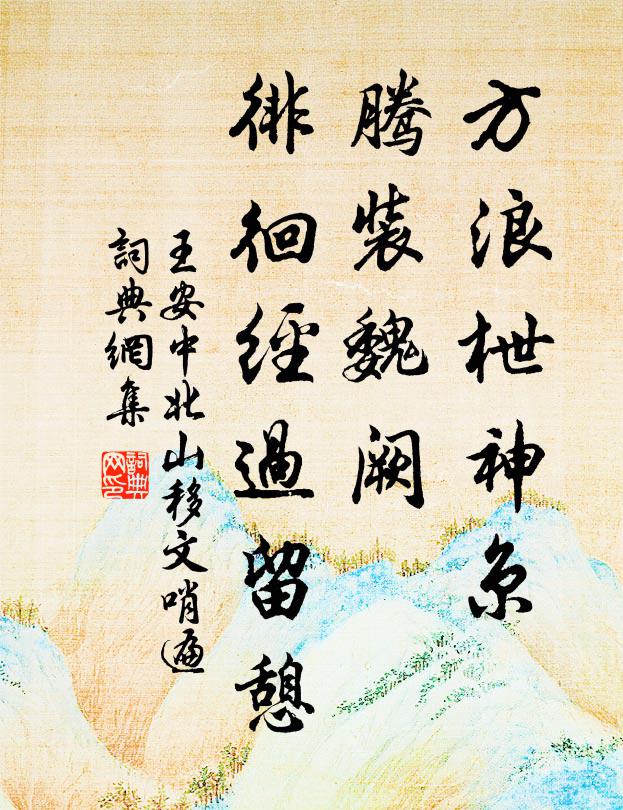 方浪枻神京
騰裝魏闕
徘徊經過留憩
王安中北山移文哨遍
詞典網集
詞典网印